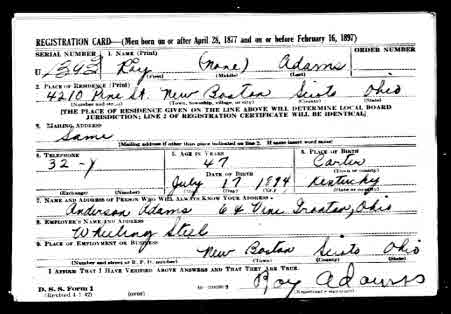 REGISTRATION CARD—(Men born on or after April 28, 1877 and on or before February 16, 1897)
SERIAL NUMBER 1. NAME (Print) ORDER NUMBER
U Roy (None) Adams
(First) (Middle) (Last)
2. PLACE OF RESIDENCE (Print)
4210 Pine St. New Boston Scioto Ohio
(Number and street) (Town, township, village, or city) (County) (State)
[THE PLACE OF RESIDENCE GIVEN ON THE LINE ABOVE WILL DETERMINE LOCAL BOARD
JURISDICTION; LINE 2 OF REGISTRATION CERTIFICATE WILL BE IDENTICAL]
3. MAILING ADDRESS
Same
[Mailing address if other than place indicated on line 2. If same insert word same]
4. TELEPHONE 5. AGE IN YEARS 6. PLACE OF BIRTH
32-Y 47 Carter
DATE OF BIRTH (Town or county)
July 17 1894 Kentucky
(Exchange) (Number) (Mo.) (Day) (Yr.) (State or country)
7. NAME AND ADDRESS OF PERSON WHO WILL ALWAYS KNOW YOUR ADDRESS
Anderson Adams 64 Vine Ironton, Ohio
8. EMPLOYER'S NAME AND ADDRESS
Wheeling Steel
9. PLACE OF EMPLOYMENT OR BUSINESS
New Boston Scioto Ohio
(Number and street or R. F. D. number) (Town) (County) (State)
I AFFIRM THAT I HAVE VERIFIED ABOVE ANSWERS AND THAT THEY ARE TRUE.
Roy Adams
D. S. S. Form 1
(Revised 4-1-42) (over) (Registrant's signature)